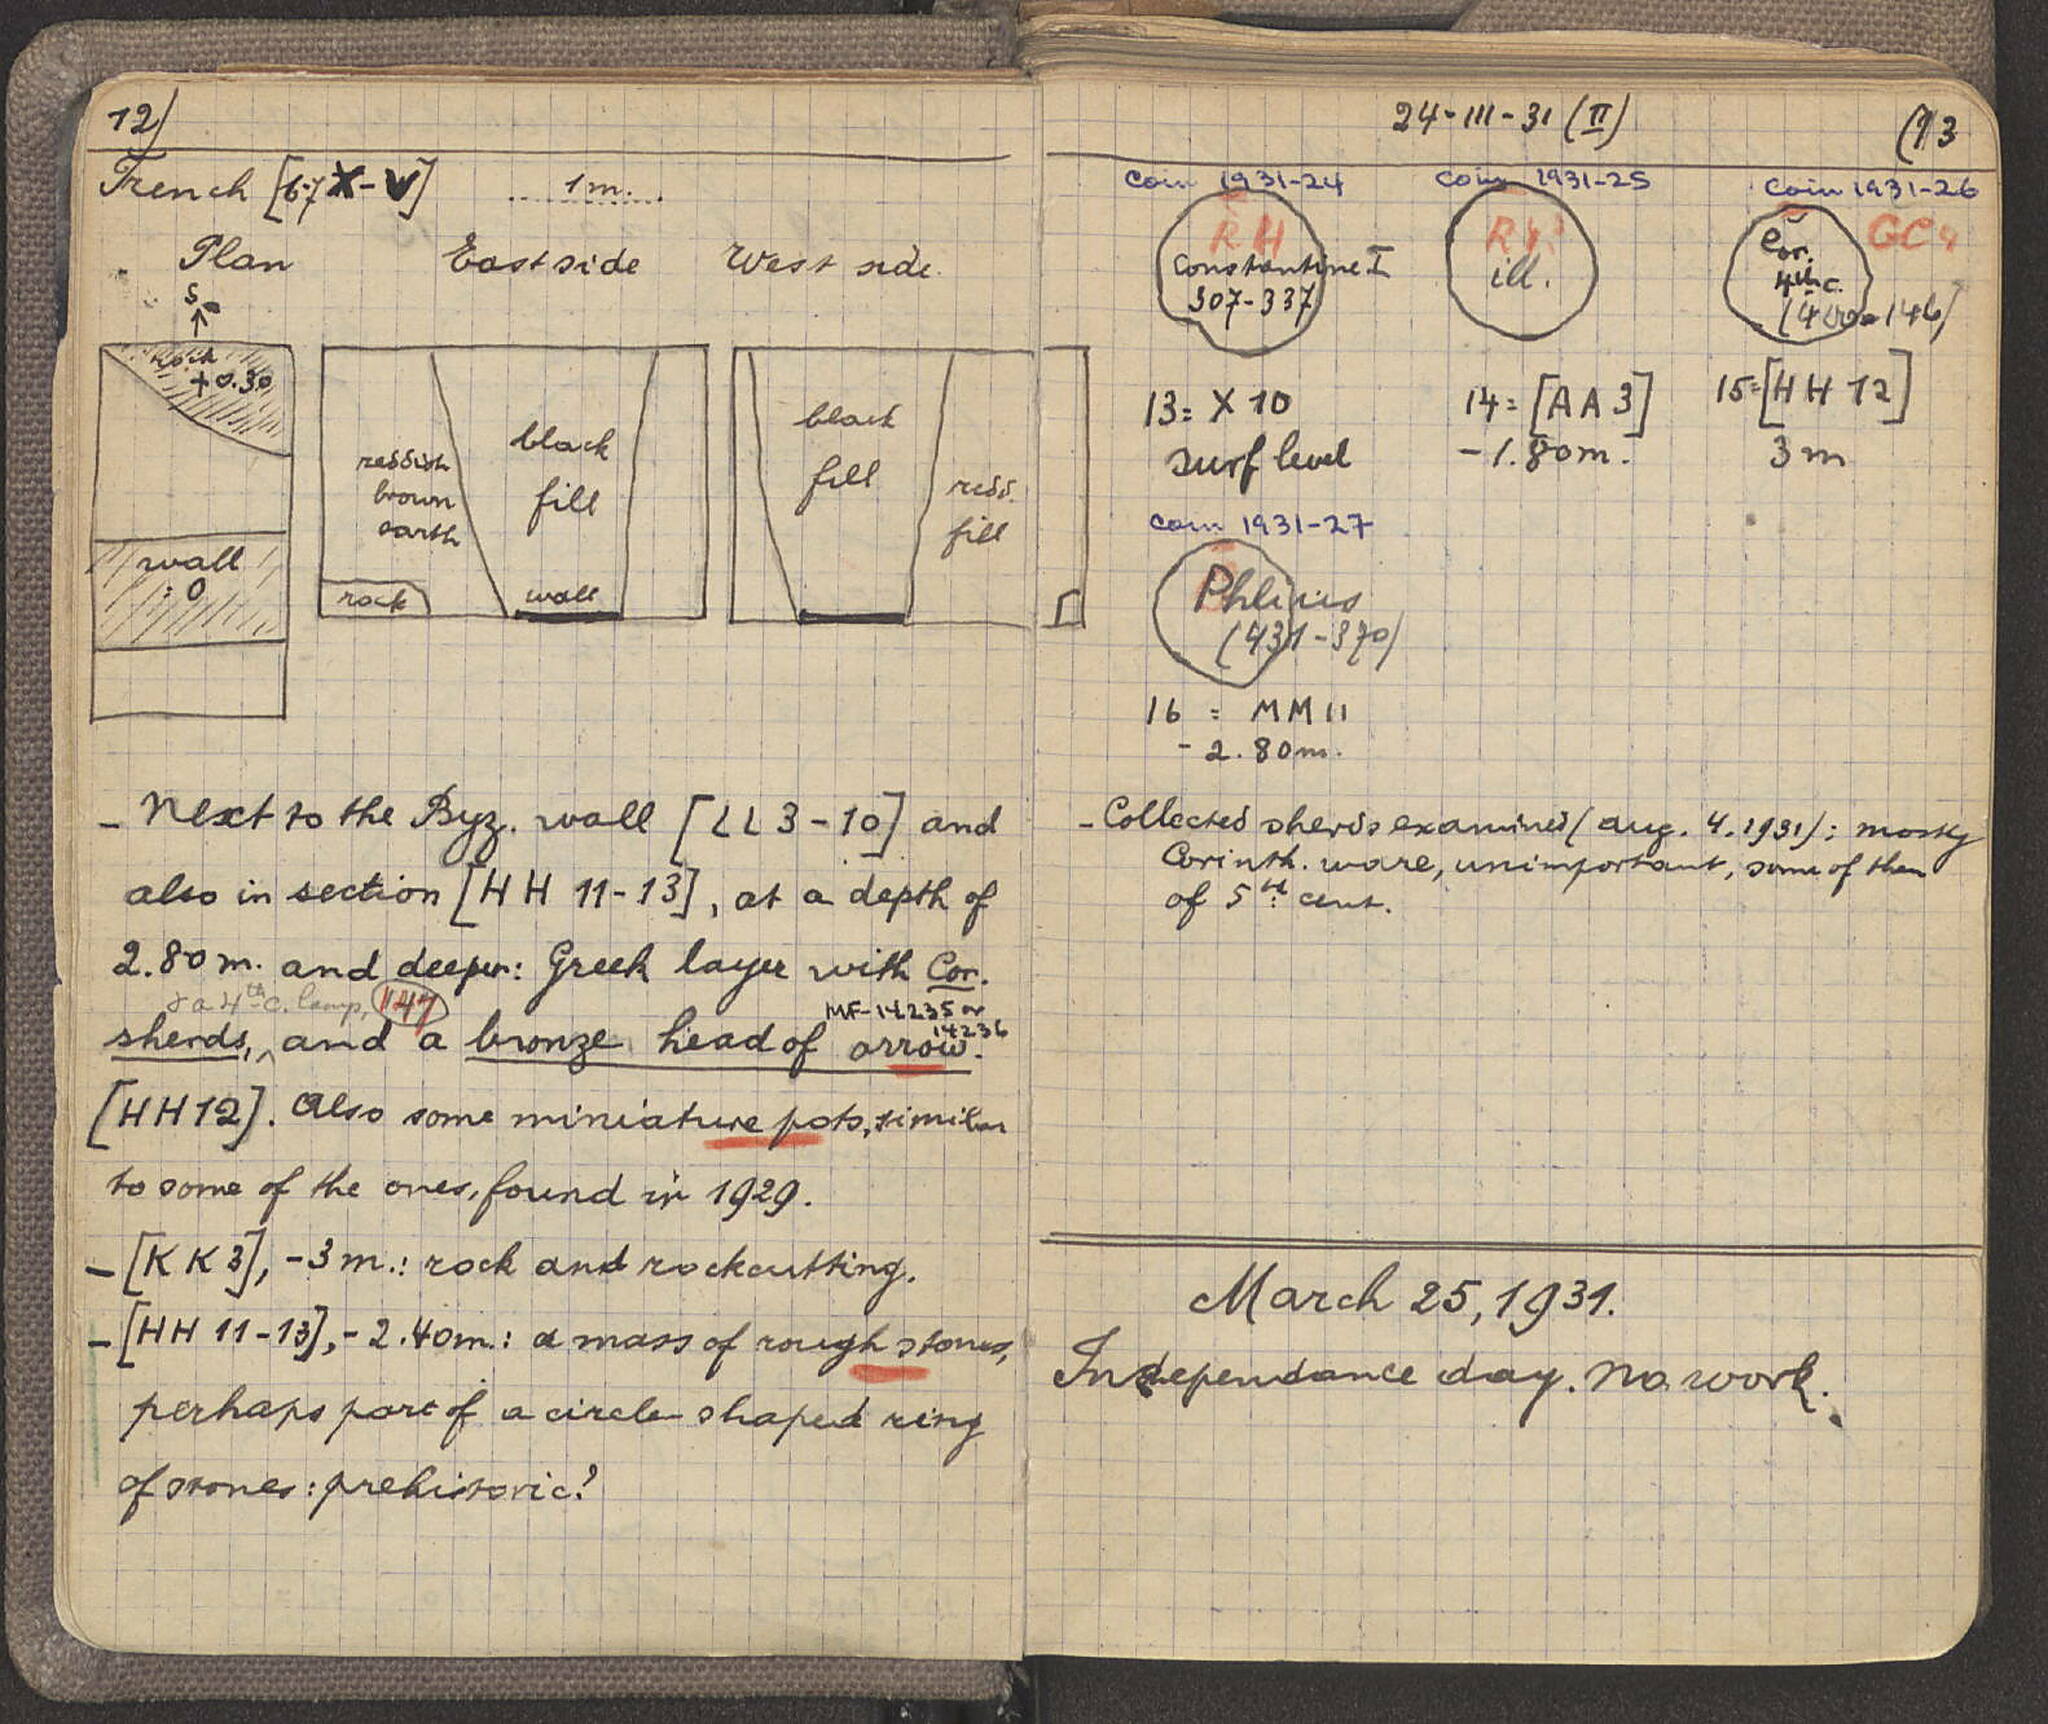 12)
Trench [6-7 X-V] 1m.
Plan East side West side.
S
rock
+0.30
wall
: 0
reddish
brown
earth
black
fill
rock
wall
black
fill
redd.
fill
- Next to the Byz. wall [LL 3-10] and
also in section [HH 11-13], at a depth of
2.80 m. and deeper: Greek layer with Cor.
& a 4th c. lamp, 1147 MF-14235 or
14236
sherds, and a bronze head of arrow.
[HH12]. Also some miniature pots, similar
to some of the ones, found in 1929.
- [KK3], -3 m.: rock and rockcutting.
- [HH 11-13], -2.40m.: a mass of rough stones,
perhaps part of a circle shaped ring
of stones: prehistoric?
24-III-31 (II) (13
coin 1931-24 coin 1931-25 coin 1931-26
RH
Constantine I
307-337
ill.
GC
Cor.
4th c.
13 = X 10
surf level
14 = [AA 3]
-1.80m.
15 = [HH 12]
3 m
coin 1931-27
Phlius
(431-370)
16 = MM 11
- 2.80m.
- Collected sherds examined (aug. 4. 1931): mostly
Corinth. ware, unimportant, some of them
of 5th cent.
March 25, 1931.
Independance day. No work.